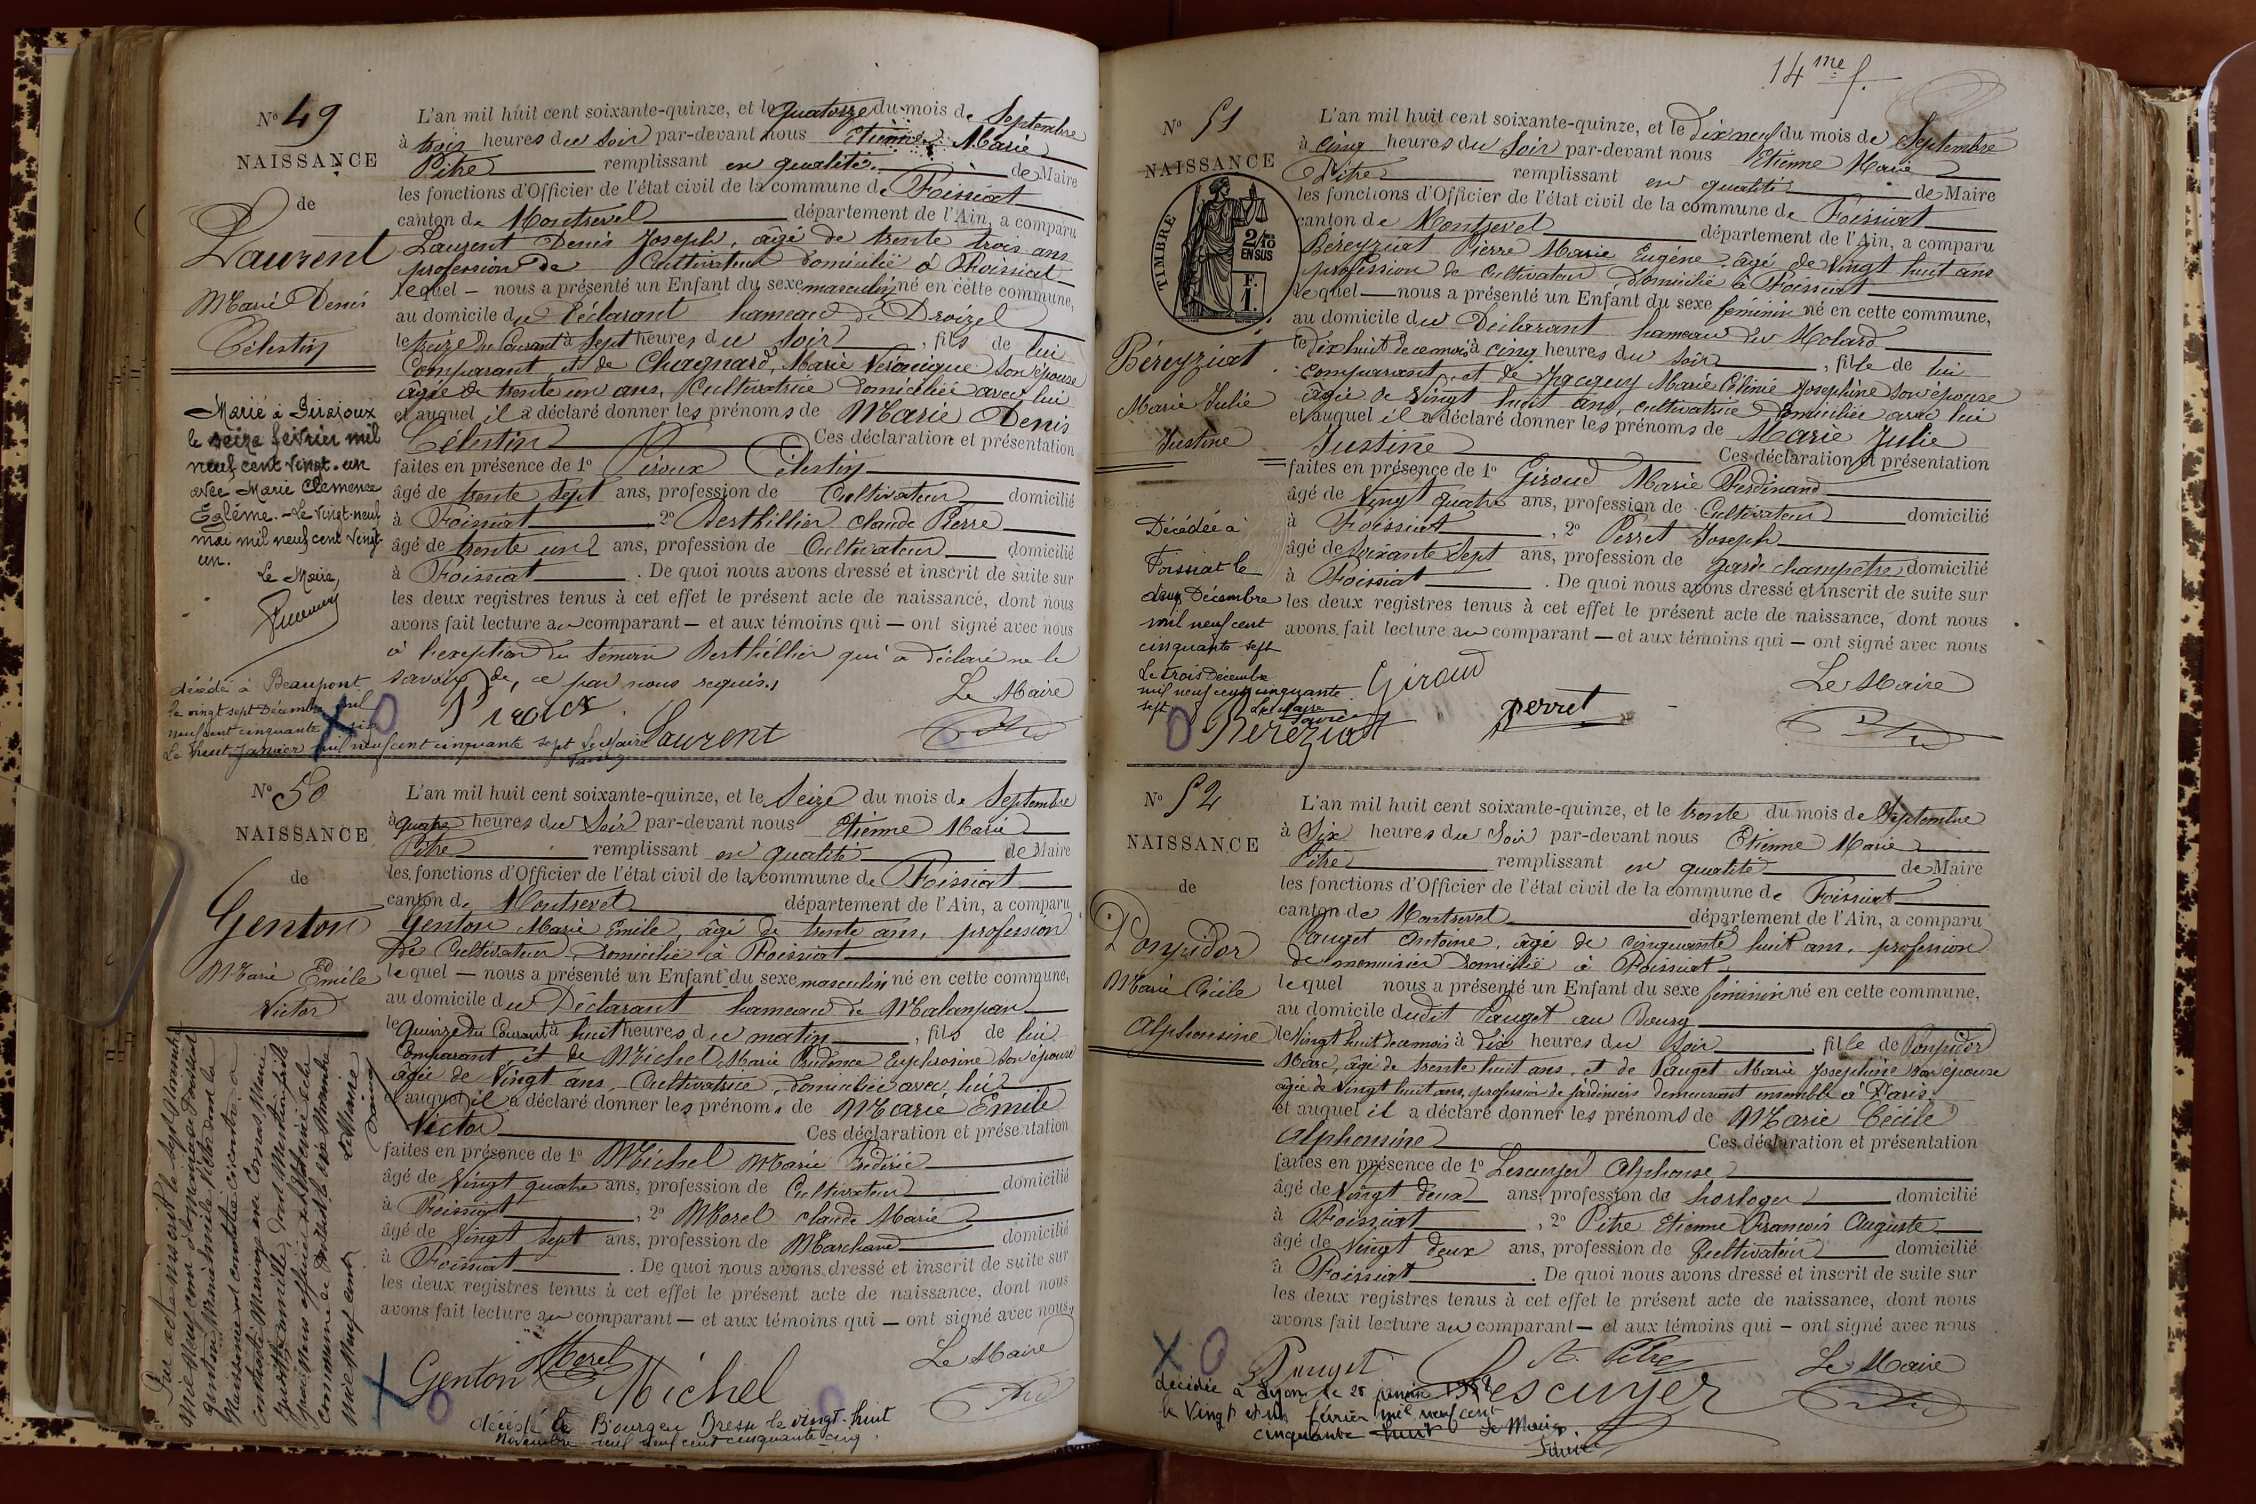 Nº 49
NAISSANCE
de
Laurent
Marie Denis
Célestin
Marié à Jirajoux
le seize février mil
neuf cent vingt-un
avec Marie Clémence
Eglème. - Le Vingt-neuf
mai mil neuf cent vingt-
un.
Le Maire,
décédé à Beaupont
le vingt sept Décembre mil
neuf cent cinquante six
Le huit Janvier mil neuf cent cinquante sept Le Maire
L'an mil huit cent soixante-quinze, et le quatorze du mois de Septembre
à trois heures du soir par-devant nous Etienne Marie
Pitre remplissant en qualité de Maire
les fonctions d'Officier de l'état civil de la commune de Foissiat
canton de Montrevel département de l'Ain, a comparu
Laurent Denis Joseph, âgé de trente trois ans
profession de Cultivateur domicilié à Foissiat
lequel — nous a présenté un Enfant du sexe masculin né en cette commune,
au domicile du Déclarant hameau de Droizel
le treize du Courant à Sept heures du soir, fils de lui
Comparant, et de Chagnard, Marie Véronique son épouse
âgée de trente un ans, Cultivatrice domiciliée avec lui
et auquel il a déclaré donner les prénoms de Marie Denis
Célestin Ces déclaration et présentation
faites en présence de 1º Piroux Célestin
âgé de trente sept ans, profession de Cultivateur domicilié
à Foissiat 2º Berthillier Claude Pierre
âgé de trente un ans, profession de Cultivateur domicilié
à Foissiat. De quoi nous avons dressé et inscrit de suite sur
les deux registres tenus à cet effet le présent acte de naissance, dont nous
avons fait lecture au comparant — et aux témoins qui — ont signé avec nous
à l'exception du témoin Berthillier qui a déclaré ne le
savoir de, ce par nous requis.
Le Maire
Piroux
Laurent
Nº 50
NAISSANCE
de
Genton
Marie Emile
Victor
L'an mil huit cent soixante-quinze, et le Seize du mois de Septembre
à quatre heures du Soir par-devant nous Etienne Marie
Pitre remplissant en qualité de Maire
les fonctions d'Officier de l'état civil de la commune de Foissiat
canton de Montrevel département de l'Ain, a comparu
Genton Marie Emile, âgé de trente ans, profession
de Cultivateur, domicilié à Foissiat
lequel — nous a présenté un Enfant du sexe masculin né en cette commune,
au domicile du Déclarant hameau de Malanpan
le quinze du Courant à huit heures du matin, fils de lui
Comparant, et de Michel Marie Prudence Euphrosine son épouse
âgée de Vingt ans, Cultivatrice, domiciliée avec lui
et auquel il a déclaré donner les prénoms de Marie Emile
Victor Ces déclaration et présentation
faites en présence de 1º Michel Marie Frédéric
âgé de Vingt quatre ans, profession de Cultivateur domicilié
à Foissiat, 2º Morel Claude Marie
âgé de Vingt sept ans, profession de Marchand domicilié
à Foissiat. De quoi nous avons dressé et inscrit de suite sur
les deux registres tenus à cet effet le présent acte de naissance, dont nous
avons fait lecture au comparant — et aux témoins qui — ont signé avec nous
Le Maire
Genton Morel Michel
décédé à Bourg en Bresse le vingt-huit
Novembre mil neuf cent cinquante-cinq.
14me f.
Nº 51
NAISSANCE
TIMBRE
2/10
EN SUS
F.
1.
Béreyziat
Marie Julie
Justine
Décédée à
Foissiat le
deux Décembre
mil neuf cent
cinquante sept
Le trois Décembre
mil neuf cent cinquante
sept
Le Maire
L'an mil huit cent soixante-quinze, et le dix neuf du mois de Septembre
à Cinq heures du Soir par-devant nous Etienne Marie
Pitre remplissant en qualité de Maire
les fonctions d'Officier de l'état civil de la commune de Foissiat
canton de Montrevel département de l'Ain, a comparu
Béreyziat Pierre Marie Eugène, âgé de Vingt huit ans
profession de Cultivateur, domicilié à Foissiat
lequel — nous a présenté un Enfant du sexe féminin né en cette commune,
au domicile du Déclarant hameau du Molard
le dix huit de ce mois à cinq heures du soir, fille de lui
comparant, et de Marie Célénie Joséphine son épouse
âgée de Vingt huit ans, cultivatrice domiciliée avec lui
et auquel il a déclaré donner les prénoms de Marie Julie
Justine Ces déclaration et présentation
faites en présence de 1º Giroud Marie Ferdinand
âgé de Vingt quatre ans, profession de Cultivateur domicilié
à Foissiat, 2º Perret Joseph
âgé de soixante Sept ans, profession de garde champêtre domicilié
à Foissiat. De quoi nous avons dressé et inscrit de suite sur
les deux registres tenus à cet effet le présent acte de naissance, dont nous
avons fait lecture au comparant — et aux témoins qui — ont signé avec nous
Le Maire
Giroud
perret
Bereziat
Nº 52
NAISSANCE
de
Ponpidor
Marie Cécile
Alphonsine
L'an mil huit cent soixante-quinze, et le trente du mois de Septembre
à Six heures du Soir par-devant nous Etienne Marie
Pitre remplissant en qualité de Maire
les fonctions d'Officier de l'état civil de la commune de Foissiat
canton de Montrevel département de l'Ain, a comparu
Pauget Antoine, âgé de cinquante huit ans, profession
de menuisier domicilié à Foissiat
lequel nous a présenté un Enfant du sexe féminin né en cette commune,
au domicile dudit Pauget au Bourg
le Vingt huit de ce mois à dix heures du soir, fille de Ponpidor
Marc, âgé de trente huit ans, et de Pauget Marie Joséphine son épouse
âgée de Vingt huit ans, profession de jardiniers demeurant ensemble à Paris.
et auquel il a déclaré donner les prénoms de Marie Cécile
Alphonsine Ces déclaration et présentation
faites en présence de 1º Lescuyer Alphonse
âgé de Vingt deux ans, profession de horloger domicilié
à Foissiat, 2º Pitre Etienne François Auguste
âgé de Vingt deux ans, profession de Cultivateur domicilié
à Foissiat. De quoi nous avons dressé et inscrit de suite sur
les deux registres tenus à cet effet le présent acte de naissance, dont nous
avons fait lecture au comparant — et aux témoins qui — ont signé avec nous
Pauget A. Pitre Lescuyer
Le Maire
décédée à Lyon le 28 janvier 1958
le Vingt et un février mil neuf cent
cinquante huit Le Maire